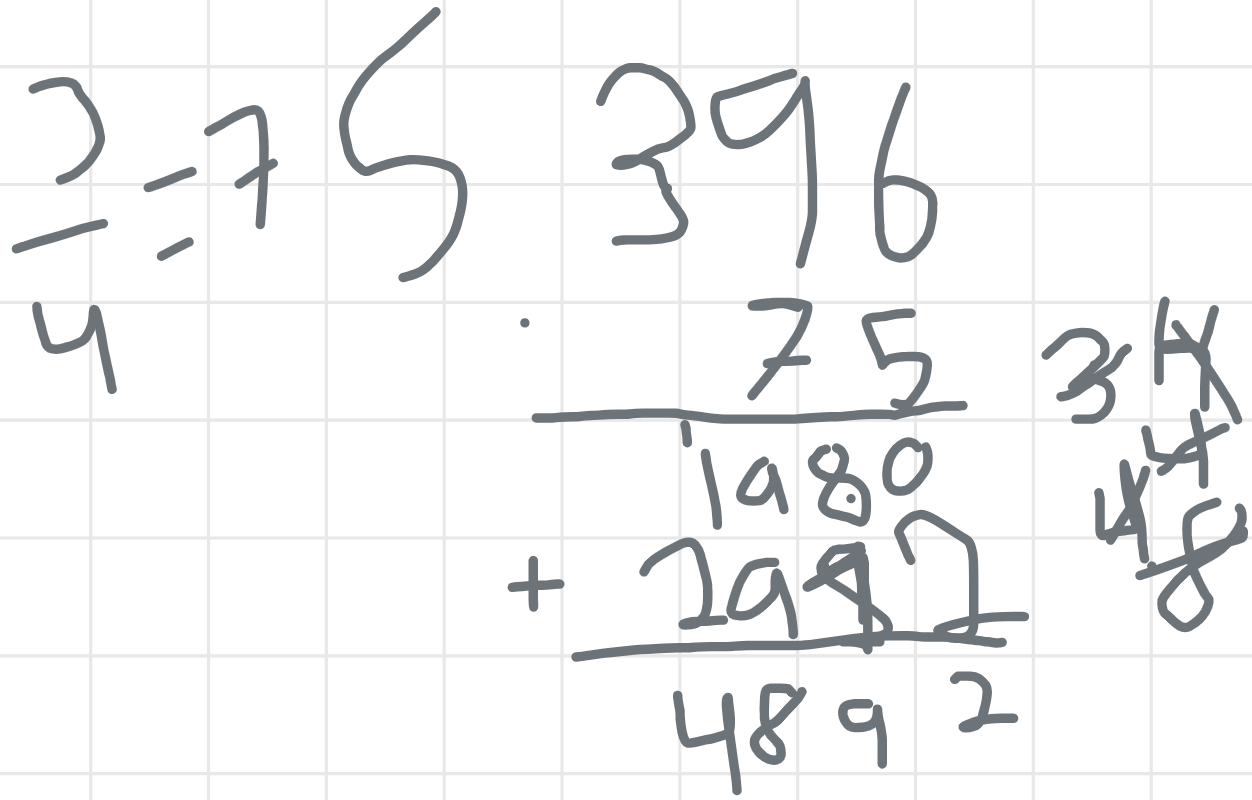 3/4 = 75
396
75
1980
+ 2972
4892
3 4
4
4 8